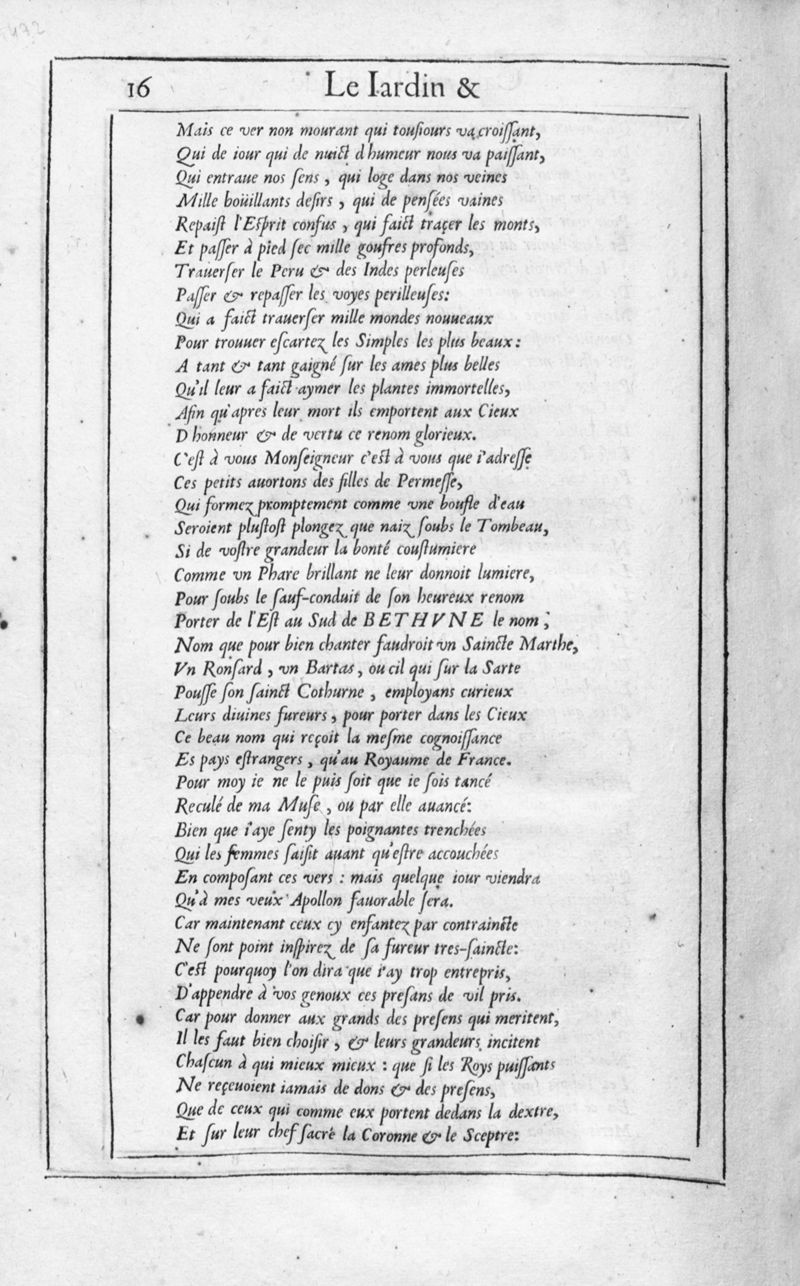 16 Le Iardin &
Mais ce ver non mourant qui touſiours va croiſſant,
Qui de iour qui de nuict d humeur nous va paiſſant,
Qui entraue nos ſens, qui loge dans nos veines
Mille boüillants deſirs, qui de penſées vaines
Repaiſt l'Eſprit confus, qui faict traçer les monts,
Et paſſer à pied ſec mille goufres profonds,
Trauerſer le Peru & des Indes perleuſes
Paſſer & repaſſer les voyes perilleuſes:
Qui a faict trauerſer mille mondes nouueaux
Pour trouuer eſcartez les Simples les plus beaux:
A tant & tant gaigné ſur les ames plus belles
Qu'il leur a faict aymer les plantes immortelles,
Afin qu'apres leur mort ils emportent aux Cieux
D honneur & de vertu ce renom glorieux.
C'eſt à vous Monſeigneur c'eſt à vous que i'adreſſe
Ces petits auortons des filles de Permeſſe,
Qui formez promptement comme vne boufle d'eau
Seroient pluſtoſt plongez que naiz ſoubs le Tombeau,
Si de voſtre grandeur la bonté couſtumiere
Comme vn Phare brillant ne leur donnoit lumiere,
Pour ſoubs le ſauf-conduit de ſon heureux renom
Porter de l'Eſt au Sud de BETHVNE le nom;
Nom que pour bien chanter faudroit vn Saincte Marthe,
Vn Ronſard, vn Bartas, ou cil qui ſur la Sarte
Pouſſe ſon ſainct Cothurne, employans curieux
Leurs diuines fureurs, pour porter dans les Cieux
Ce beau nom qui reçoit la meſme cognoiſſance
Es pays eſtrangers, qu'au Royaume de France.
Pour moy ie ne le puis ſoit que ie ſois tancé
Reculé de ma Muſe, ou par elle auancé:
Bien que i'aye ſenty les poignantes trenchées
Qui les femmes ſaiſit auant qu'eſtre accouchées
En compoſant ces vers: mais quelque iour viendra
Qu'à mes veux Apollon fauorable ſera.
Car maintenant ceux cy enfantez par contraincte
Ne ſont point inſpirez de ſa fureur tres-ſaincte:
C'eſt pourquoy l'on dira que i'ay trop entrepris,
D'appendre à vos genoux ces preſans de vil pris.
Car pour donner aux grands des preſens qui meritent,
Il les faut bien choiſir, & leurs grandeurs incitent
Chaſcun à qui mieux mieux: que ſi les Roys puiſſants
Ne reçeuoient iamais de dons & des preſens,
Que de ceux qui comme eux portent dedans la dextre,
Et ſur leur chef ſacré la Coronne & le Sceptre: